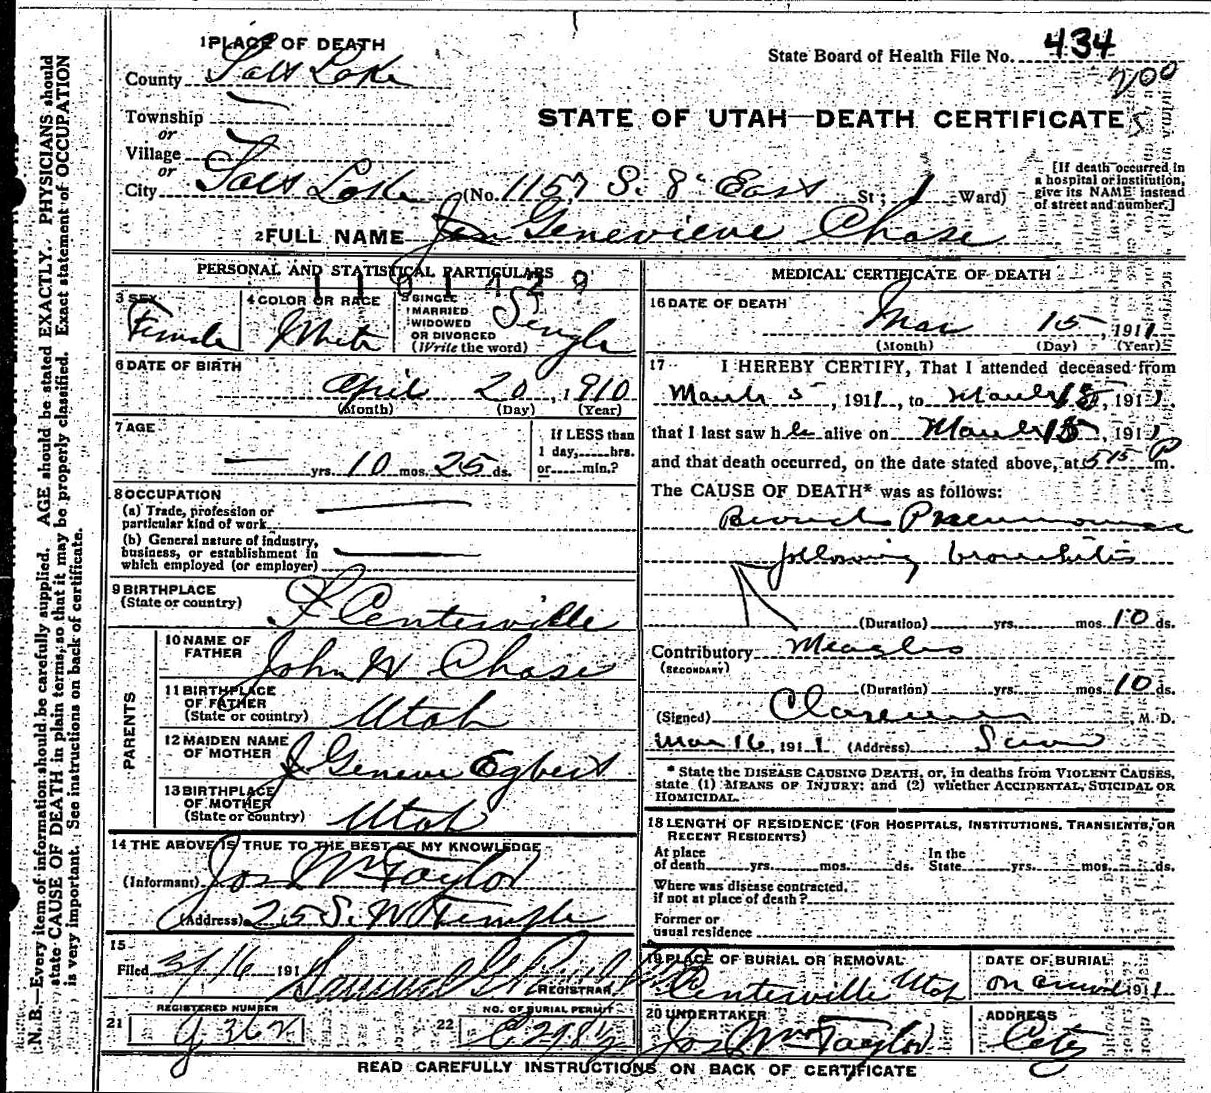 1 PLACE OF DEATH
State Board of Health File No. 434
County Salt Lake
200
Township
or
STATE OF UTAH—DEATH CERTIFICATE
Village
or
City Salt Lake (No. 1157 S. 8 East St; 1 Ward)
[If death occurred in a hospital or institution, give its NAME instead of street and number.]
2 FULL NAME Genevieve Chase
PERSONAL AND STATISTICAL PARTICULARS
1101429
3 SEX Female
4 COLOR OR RACE White
5 SINGLE MARRIED WIDOWED OR DIVORCED (Write the word) Single
6 DATE OF BIRTH April 20, 1910
(Month) (Day) (Year)
7 AGE — yrs. 10 mos. 25 ds.
If LESS than 1 day, hrs. or min.?
8 OCCUPATION
(a) Trade, profession or particular kind of work
(b) General nature of industry, business, or establishment in which employed (or employer)
9 BIRTHPLACE (State or country) Centerville
PARENTS
10 NAME OF FATHER John W Chase
11 BIRTHPLACE OF FATHER (State or country) Utah
12 MAIDEN NAME OF MOTHER Geneve Egbert
13 BIRTHPLACE OF MOTHER (State or country) Utah
14 THE ABOVE IS TRUE TO THE BEST OF MY KNOWLEDGE
(Informant) Jos Wm Taylor
(Address) 25 S. W Temple
15
Filed 3/16 191 Samuel G REGISTRAR
REGISTERED NUMBER
21 G 362
NO. OF BURIAL PERMIT
22
MEDICAL CERTIFICATE OF DEATH
16 DATE OF DEATH
Mar 15, 1911
(Month) (Day) (Year)
17 I HEREBY CERTIFY, That I attended deceased from
March 5, 1911, to March 15, 1911,
that I last saw her alive on March 15, 1911
and that death occurred, on the date stated above, at 5 15 P m.
The CAUSE OF DEATH* was as follows:
Broncho Pneumonia
following bronchitis
(Duration) yrs. mos. 10 ds.
Contributory Measles
(SECONDARY)
(Duration) yrs. mos. 10 ds.
(Signed) M. D.
Mar 16, 1911 (Address)
* State the DISEASE CAUSING DEATH, or, in deaths from VIOLENT CAUSES, state (1) MEANS OF INJURY: and (2) whether ACCIDENTAL, SUICIDAL OR HOMICIDAL.
18 LENGTH OF RESIDENCE (FOR HOSPITALS, INSTITUTIONS, TRANSIENTS, OR RECENT RESIDENTS)
At place of death yrs. mos. ds. In the State yrs. mos. ds.
Where was disease contracted, if not at place of death?
Former or usual residence
19 PLACE OF BURIAL OR REMOVAL Centerville Utah
DATE OF BURIAL 1911
20 UNDERTAKER Jos Wm Taylor
ADDRESS City
READ CAREFULLY INSTRUCTIONS ON BACK OF CERTIFICATE
N. B.—Every item of information should be carefully supplied. AGE should be stated EXACTLY. PHYSICIANS should
state CAUSE OF DEATH in plain terms, so that it may be properly classified. Exact statement of OCCUPATION
is very important. See instructions on back of certificate.